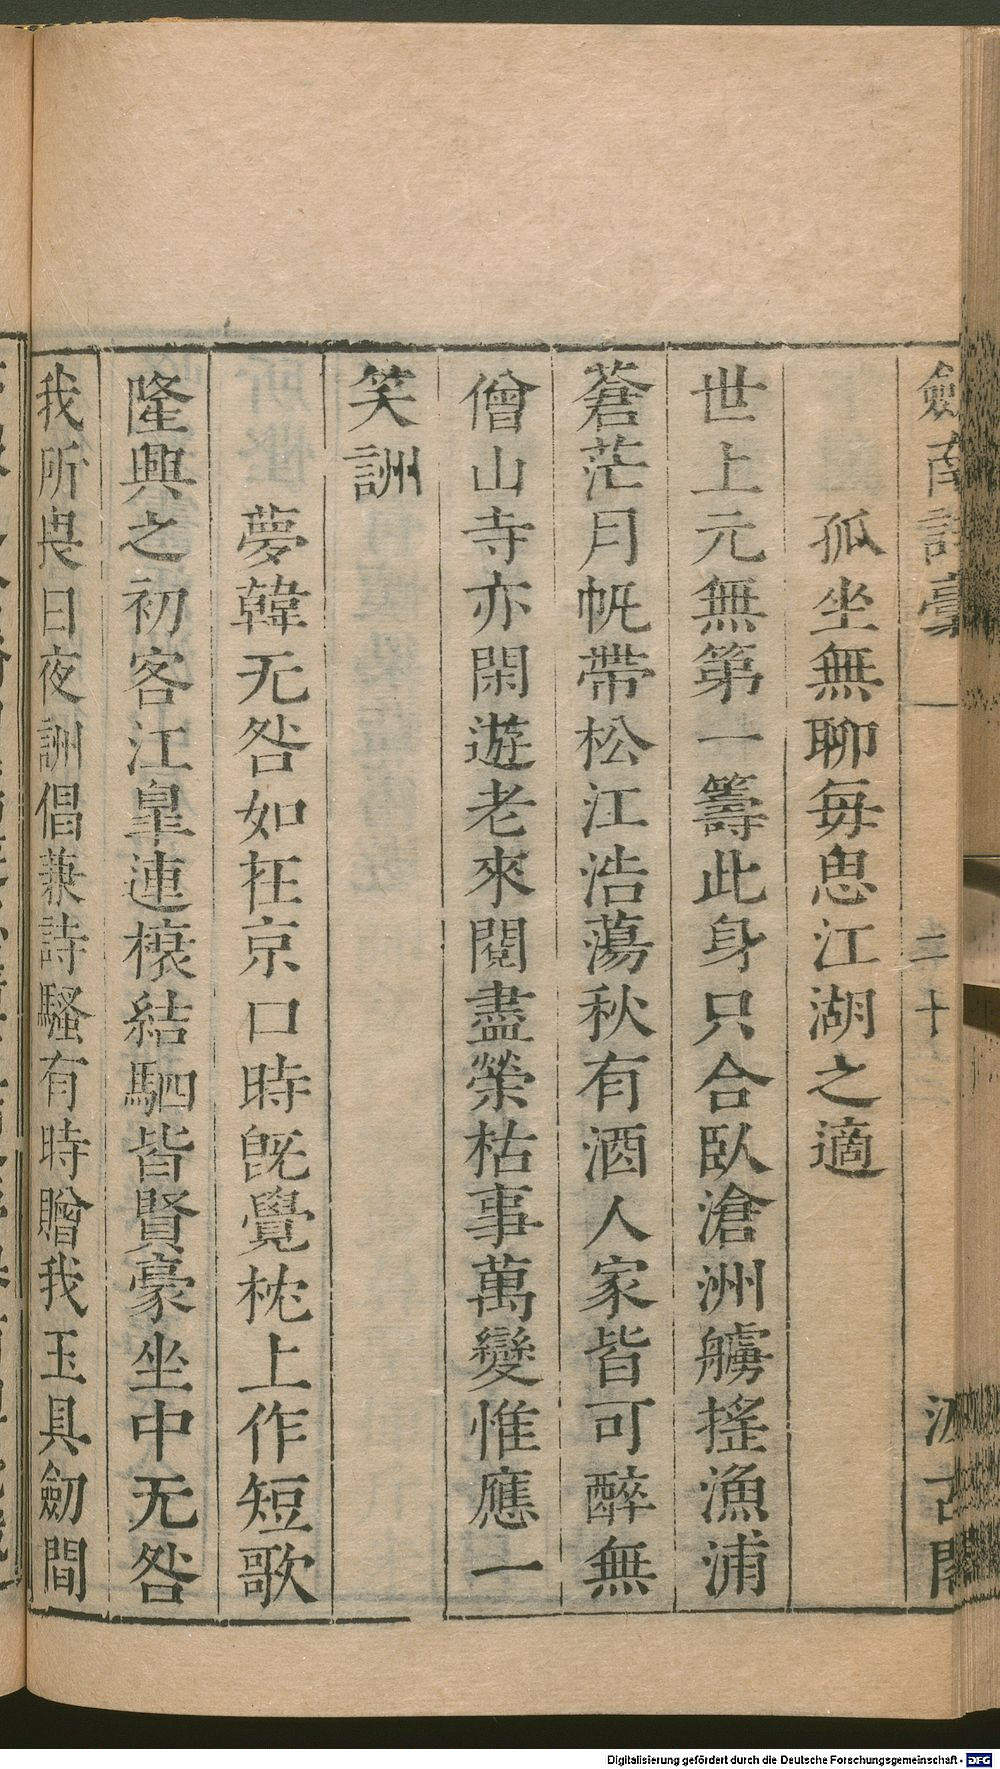 劒南詩藁 一 二十 汲古閣
孤坐無聊毎思江湖之適
世上元無第一籌此身只合臥滄洲艣搖漁浦
蒼茫月帆帶松江浩蕩秋有酒人家皆可醉無
僧山寺亦閑遊老來閱盡榮枯事萬變惟應一
笑詶
夢韓无咎如在京口時旣覺枕上作短歌
隆興之初客江臯連檣結駟皆賢豪坐中无咎
我所畏日夜詶倡兼詩騷有時贈我玉具劒間
Digitalisierung gefördert durch die Deutsche Forschungsgemeinschaft - DFG